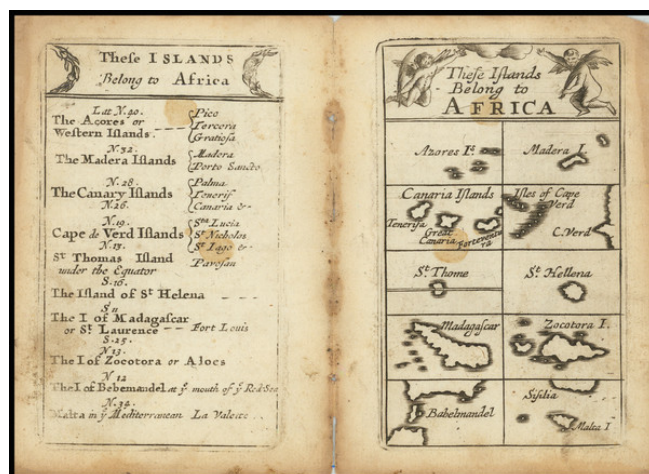 These ISLANDS
Belong to Africa
Lat N. 40.
The Açores or
Western Islands.
Pico
Tercera
Gratiosa
N. 32.
The Madera Islands
Madera
Porto Sancto
N. 28.
The Canary Islands
N. 26.
Palma
Tenerif
Canaria &
N. 19.
Cape de Verd Islands
N. 13.
Sta Lucia
St Nicholas
St Iago &
St Thomas Island
under the Equator
Pavosan
S. 16.
The Island of St Helena
S. 11
The I of Madagascar
or St Laurence
Fort Louis
S. 25.
N 13.
The I of Zocotora or
N 12
The I of Bebemandel at ye mouth of ye Red Sea
N. 34.
Malta in ye Mediterranean La Valette
These Islands
Belong to
AFRICA
Azores Is.
Madera I.
Canaria Islands
Tenerifa
Great
Canaria
Forteventu
ra
Isles of Cape
Verd
C. Verd
St Thome
St. Hellena
Madagascar
Zocotora I.
Babelmandel
Sisilia
Malta I